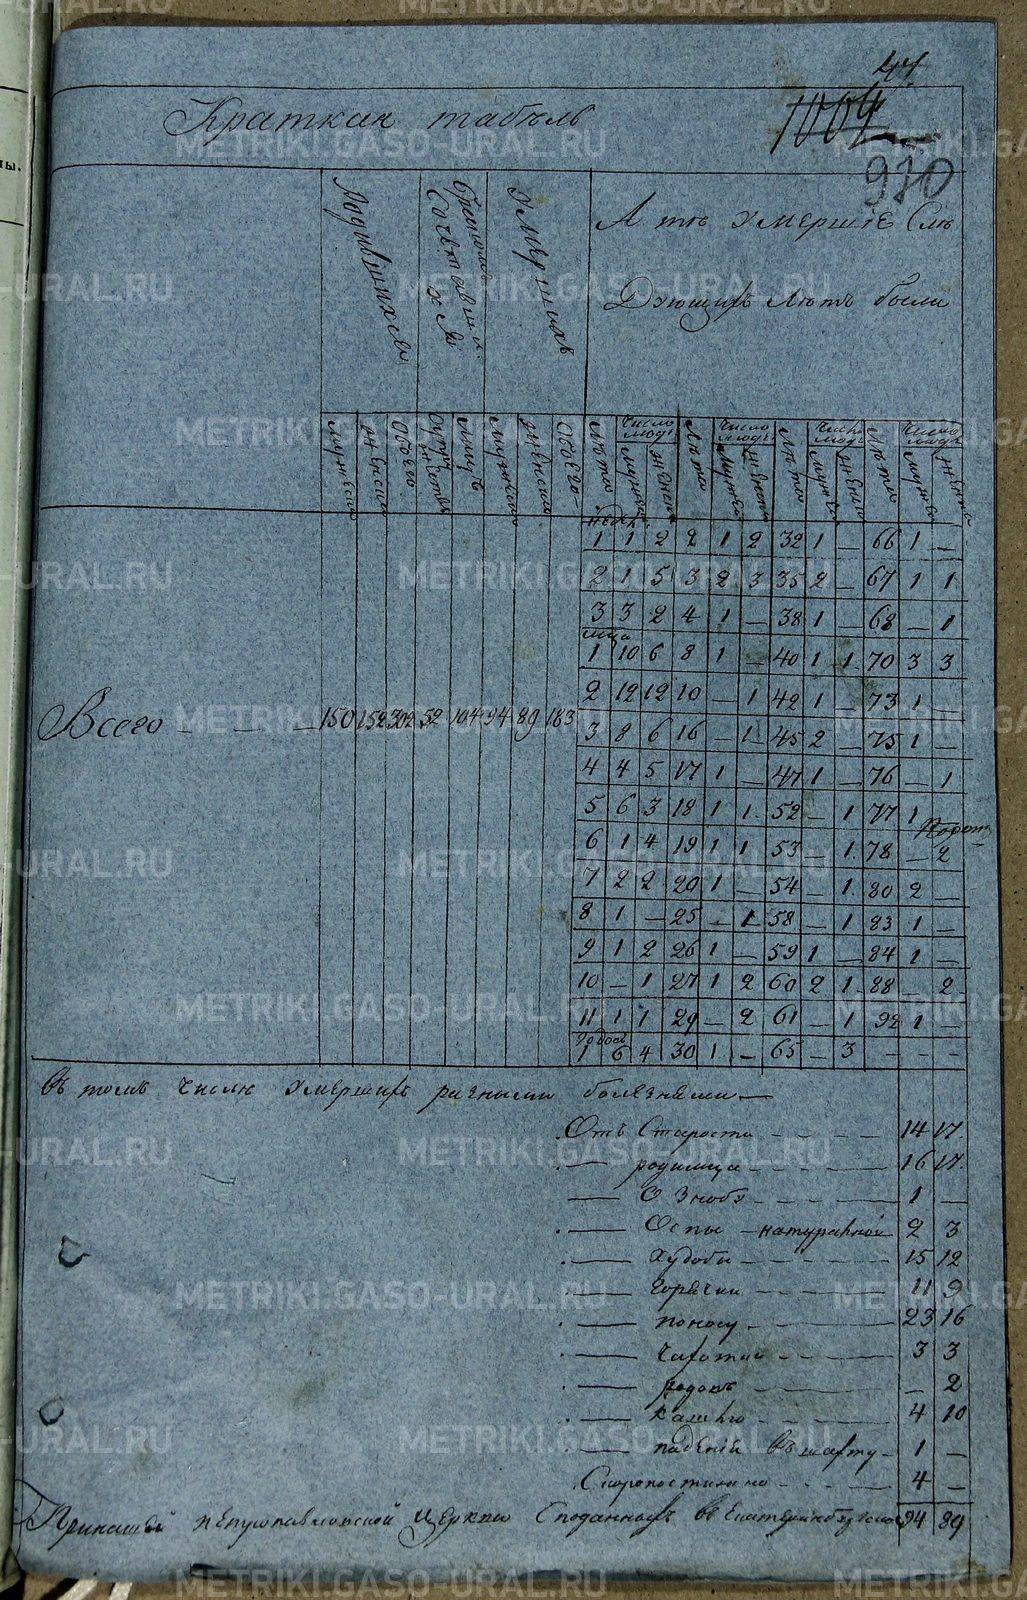 47
1009
970
Краткая табель
Родившихся
Бракомъ Сочетавшихся
Умершихъ
А тѣ Умершіе Слѣ
Дующихъ лѣтъ были
мужеска
женска
Обоего
Супружествъ
Лицъ
Мужска
женска
Обоего
Лѣта
Число людъ
Мужска
Женска
Лѣта
Число людъ
Мужска
Женска
Лѣта
Число людъ
Мужска
Женска
Лѣта
Число людъ
Мужска
Женска
недѣл.
1 1 2 2 1 2 32 1 — 66 1 —
2 1 5 3 2 3 35 2 — 67 1 1
3 3 2 4 1 — 38 1 — 68 — 1
мца
1 10 6 8 1 — 40 1 1 70 3 3
2 12 12 10 — 1 42 1 — 73 1 —
Всего — — — — 150 152 302 52 104 94 89 183
3 8 6 16 — 1 45 2 — 75 1 —
4 4 5 17 1 — 47 1 — 76 — 1
5 6 3 18 1 1 52 — 1 77 1
6 1 4 19 1 1 53 — 1 78 — 2
7 2 2 20 1 — 54 — 1 80 2 —
8 1 — 25 — 1 58 — 1 83 1 —
9 1 2 26 1 — 59 1 — 84 1 —
10 — 1 27 1 2 60 2 1 88 — 2
11 1 1 29 — 2 61 — 1 92 1 —
годовъ
1 6 4 30 1 — 65 — 3 — — —
Въ томъ числѣ Умершихъ разными болезнями —
Отъ Старости — — — — 14 17
— родимца — — — — 16 17
— Ознобу — — — — 1 —
— Оспы натуральной 2 3
— Худобы — — — — 15 12
— Горячки — — — — 11 9
— поносу — — — — 23 16
— Чахотки — — — 3 3
— родовъ — — — — — 2
— Кашлю — — — — 4 10
— паденій въ шахту — 1 —
Скоропостижно — — — — 4 —
94 89
METRIKI.GASO-URAL.RU